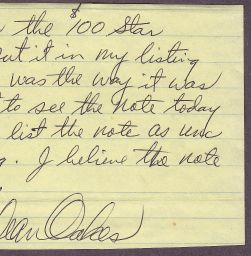 the $100 Star
put it in my listing
was the way it was
to see the note today
list the note as unc
. I believe the note
Dean Oakes